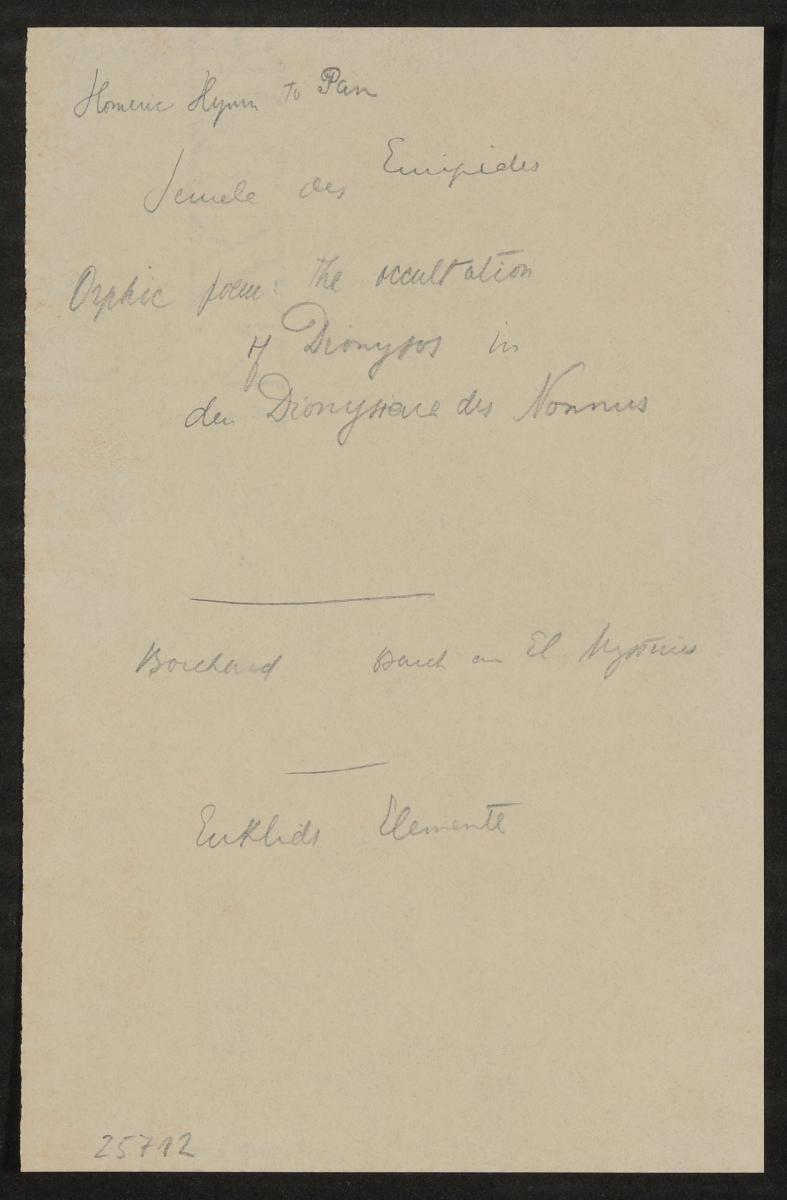 Homeric Hymn to Pan
Semele des Euripides
Orphic poem: the occultation
of Dionysos in
den Dionysiaca des Nonnus
Borchard an El. Mysteries
Euklids Elemente
25712